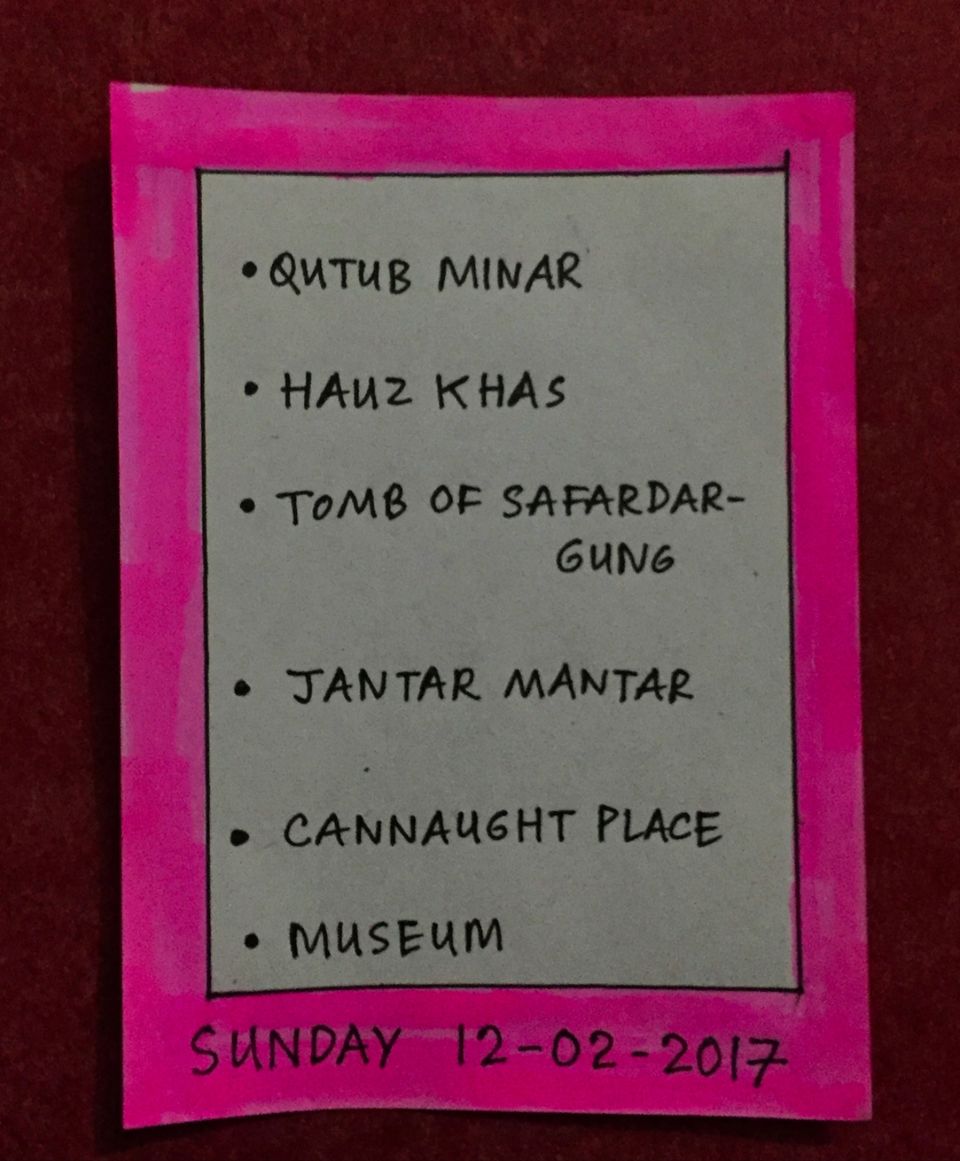 • QUTUB MINAR
• HAUZ KHAS
• TOMB OF SAFARDAR-
GUNG
• JANTAR MANTAR
• CANNAUGHT PLACE
• MUSEUM
SUNDAY 12-02-2017